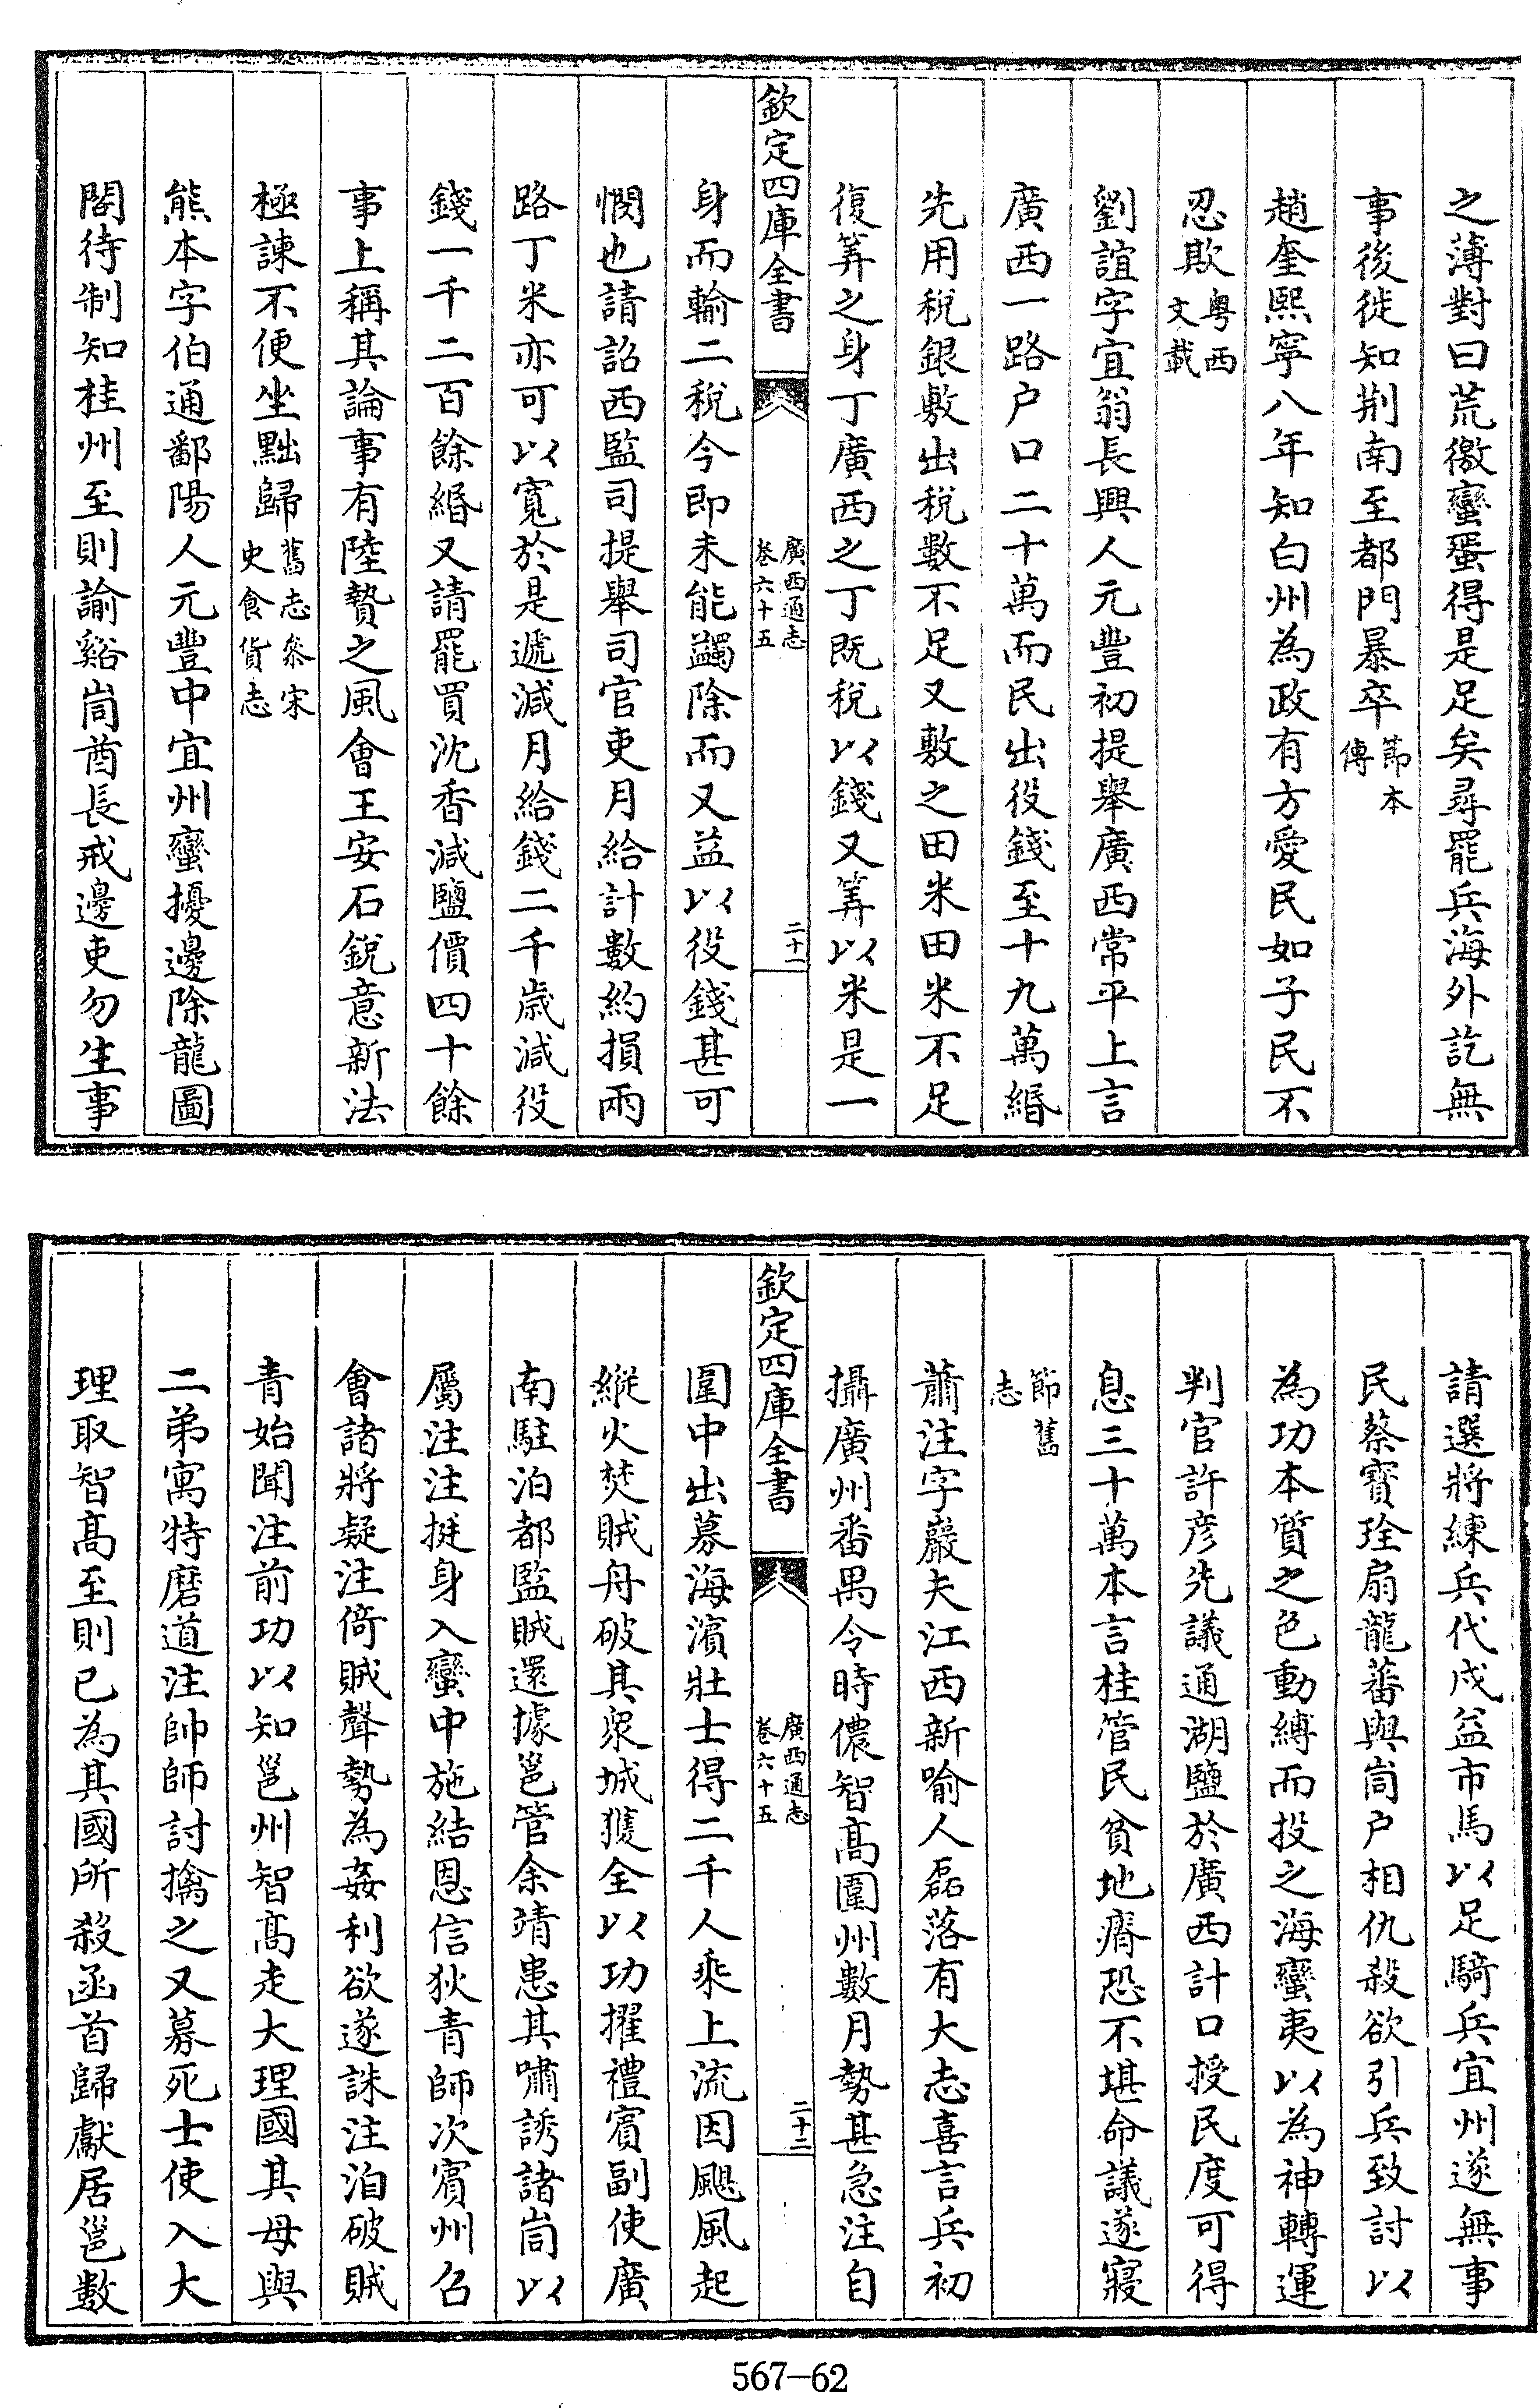 之薄對曰荒徼蠻蜑得是足矣尋罷兵海外訖無
事後徙知荆南至都門暴卒節本傳
趙奎熙寧八年知白州為政有方愛民如子民不
忍欺粤西文載
劉誼字宜翁長興人元豐初提舉廣西常平上言
廣西一路户口二十萬而民出役錢至十九萬緡
先用稅銀敷出稅數不足又敷之田米田米不足
復筭之身丁廣西之丁既稅以錢又筭以米是一
欽定四庫全書
廣西通志
卷六十五
二十一
身而輸二稅今即未能蠲除而又益以役錢甚可
憫也請詔西監司提舉司官吏月給計數約損兩
路丁米亦可以寬於是遞減月給錢二千歲減役
錢一千二百餘緡又請罷買沈香減鹽價四十餘
事上稱其論事有陸贄之風會王安石銳意新法
極諫不便坐黜歸舊志叅宋史食貨志
熊本字伯通鄱陽人元豐中宜州蠻擾邊除龍圖
閣待制知桂州至則諭谿峝酋長戒邊吏勿生事
請選將練兵代戍益市馬以足騎兵宜州遂無事
民蔡寶珓扇龍蕃與峝户相仇殺欲引兵致討以
為功本質之色動縛而投之海蠻夷以為神轉運
判官許彦先議通湖鹽於廣西計口授民度可得
息三十萬本言桂管民貧地瘠恐不堪命議遂寢
節舊志
蕭注字巖夫江西新喻人磊落有大志喜言兵初
攝廣州番禺令時儂智高圍州數月勢甚急注自
欽定四庫全書
廣西通志
卷六十五
二十二
圍中出募海濱壯士得二千人乘上流因颶風起
縱火焚賊舟破其衆城獲全以功擢禮賓副使廣
南駐泊都監賊還據邕管余靖患其嘯誘諸峝以
屬注注挺身入蠻中施結恩信狄青師次賓州召
會諸將疑注倚賊聲勢為姦利欲遂誅注洎破賊
青始聞注前功以知邕州智高走大理國其母與
二弟寓特磨道注帥師討擒之又募死士使入大
理取智高至則已為其國所殺函首歸獻居邕數
567-62